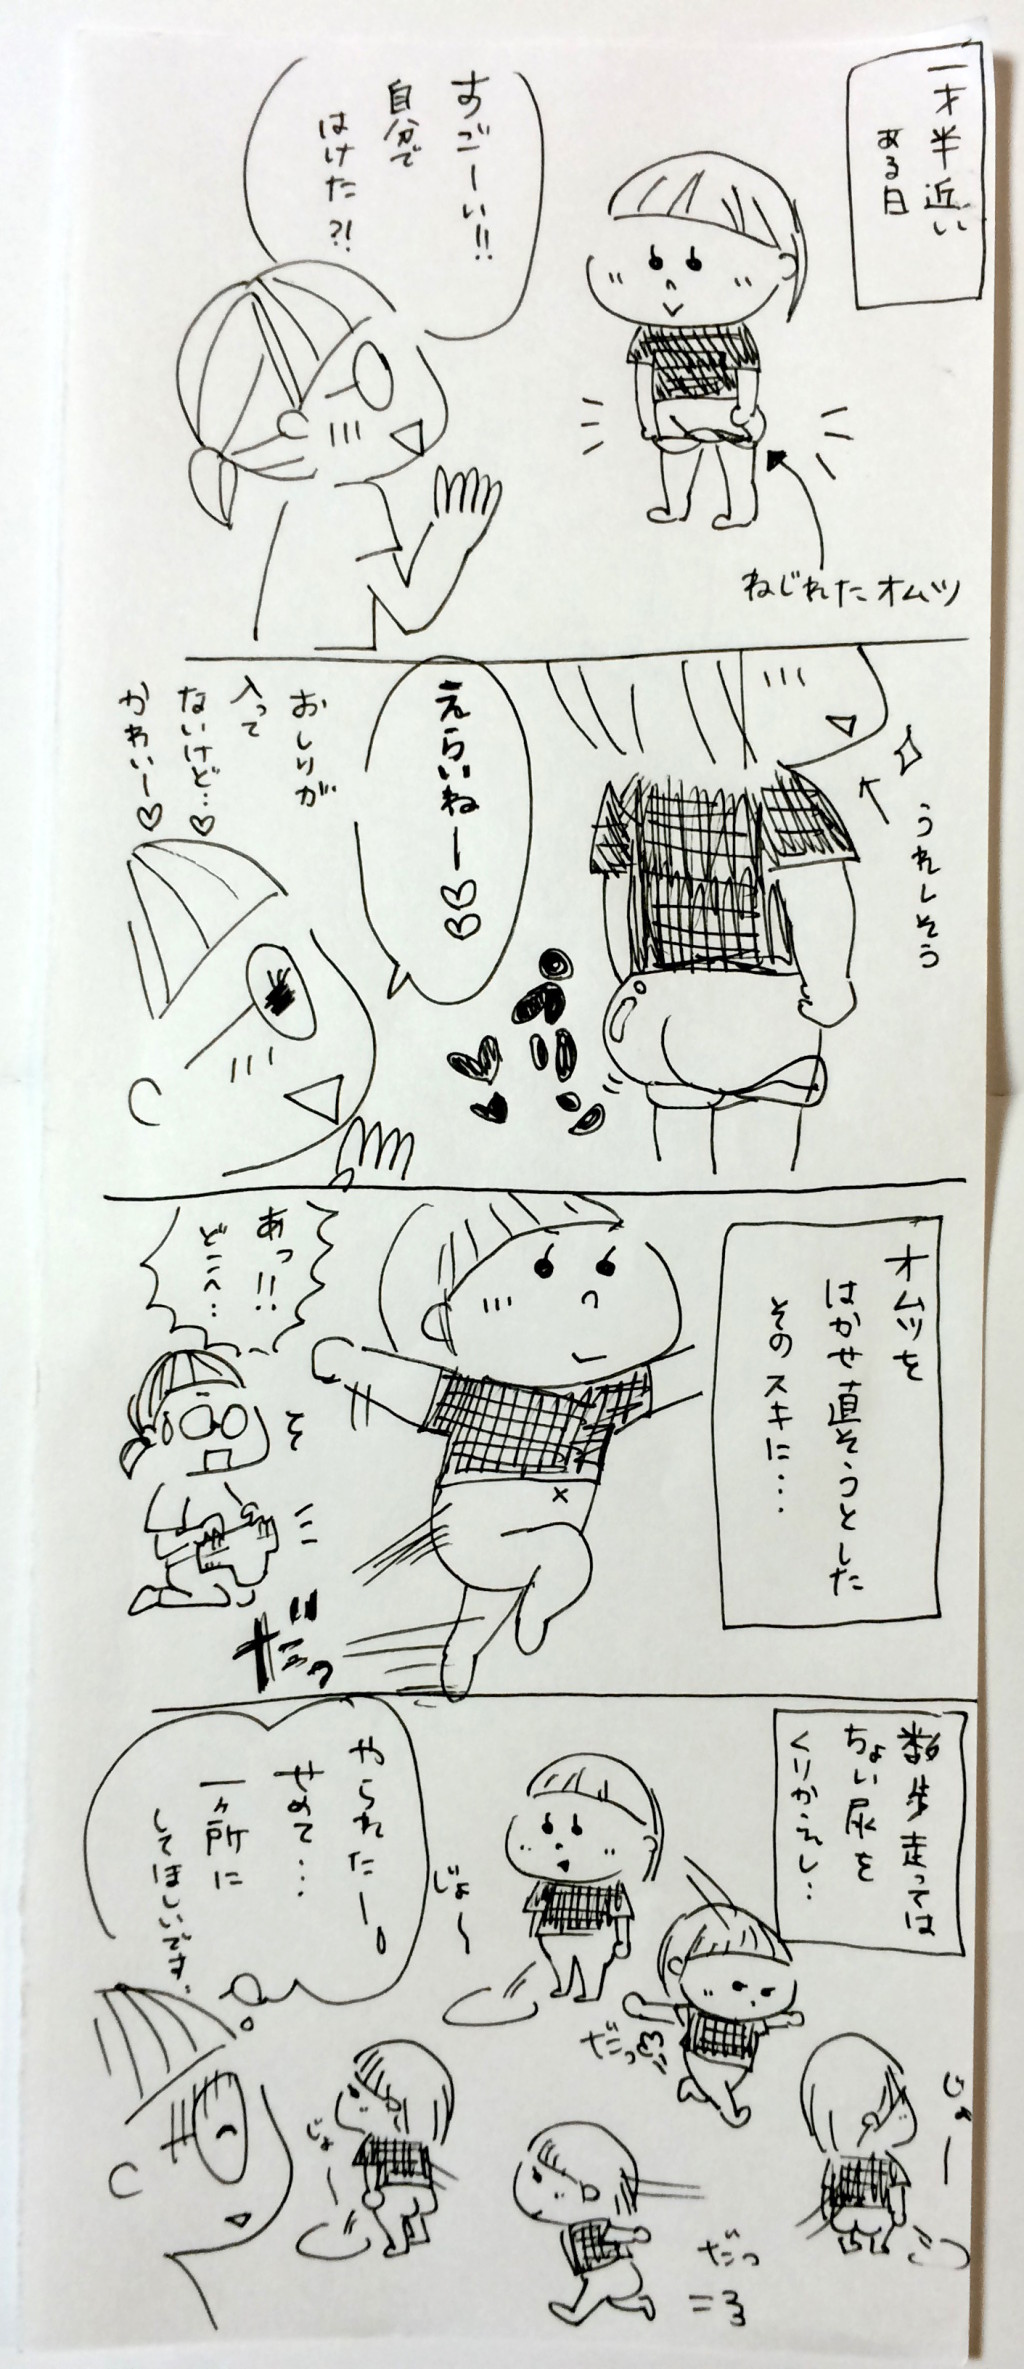 一才半近い
ある日
すごーい!!
自分で
はけた?!
ねじれたオムツ
うれしそう
えらいねー♡♡
おしりが
入って
ないけど…♡
かわいー♡
オムツを
はかせ直そうとした
そのスキに…
あっ!!
どこへ…
だっ
数歩走っては
ちょい尿を
くりかえし…
やられたー。
せめて…
一ヶ所に
してほしいです。
じょ〜
だっ
じょー
じょー
だっ